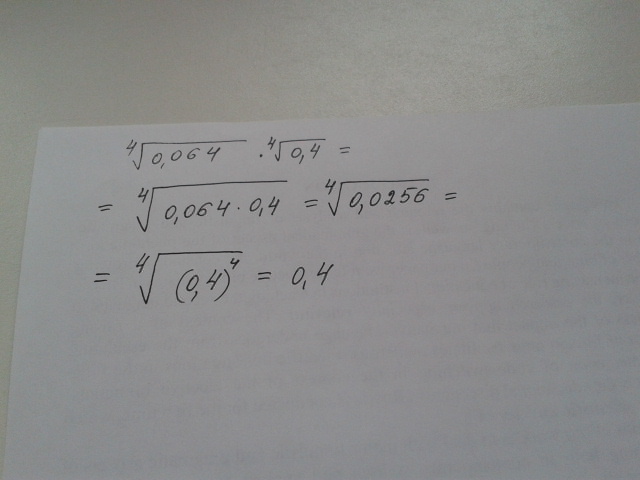 ⁴√0,064 · ⁴√0,4 =
= ⁴√0,064 · 0,4 = ⁴√0,0256 =
= ⁴√(0,4)⁴ = 0,4